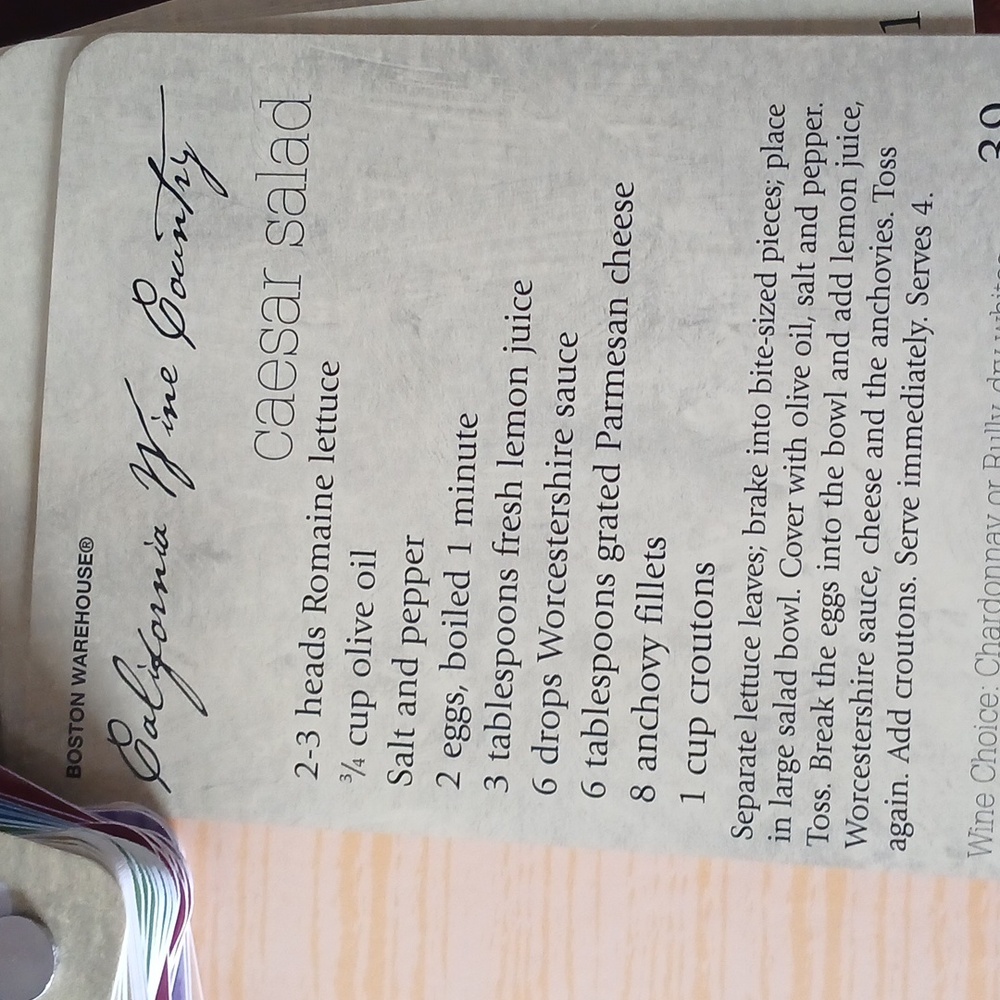 BOSTON WAREHOUSE®
California Wine Country
caesar salad
2-3 heads Romaine lettuce
3/4 cup olive oil
Salt and pepper
2 eggs, boiled 1 minute
3 tablespoons fresh lemon juice
6 drops Worcestershire sauce
6 tablespoons grated Parmesan cheese
8 anchovy fillets
1 cup croutons
Separate lettuce leaves; brake into bite-sized pieces; place
in large salad bowl. Cover with olive oil, salt and pepper.
Toss. Break the eggs into the bowl and add lemon juice,
Worcestershire sauce, cheese and the anchovies. Toss
again. Add croutons. Serve immediately. Serves 4.
Wine Choice: Chardonnay or
1